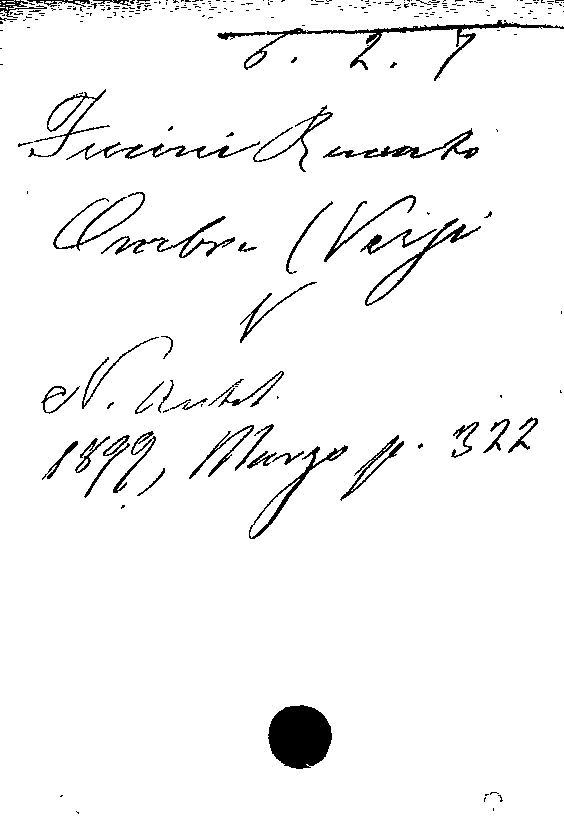 6. 2. 7
Fucini Renato
Ombra (Versi
V
N. Antol.
1899, Marzo p. 322